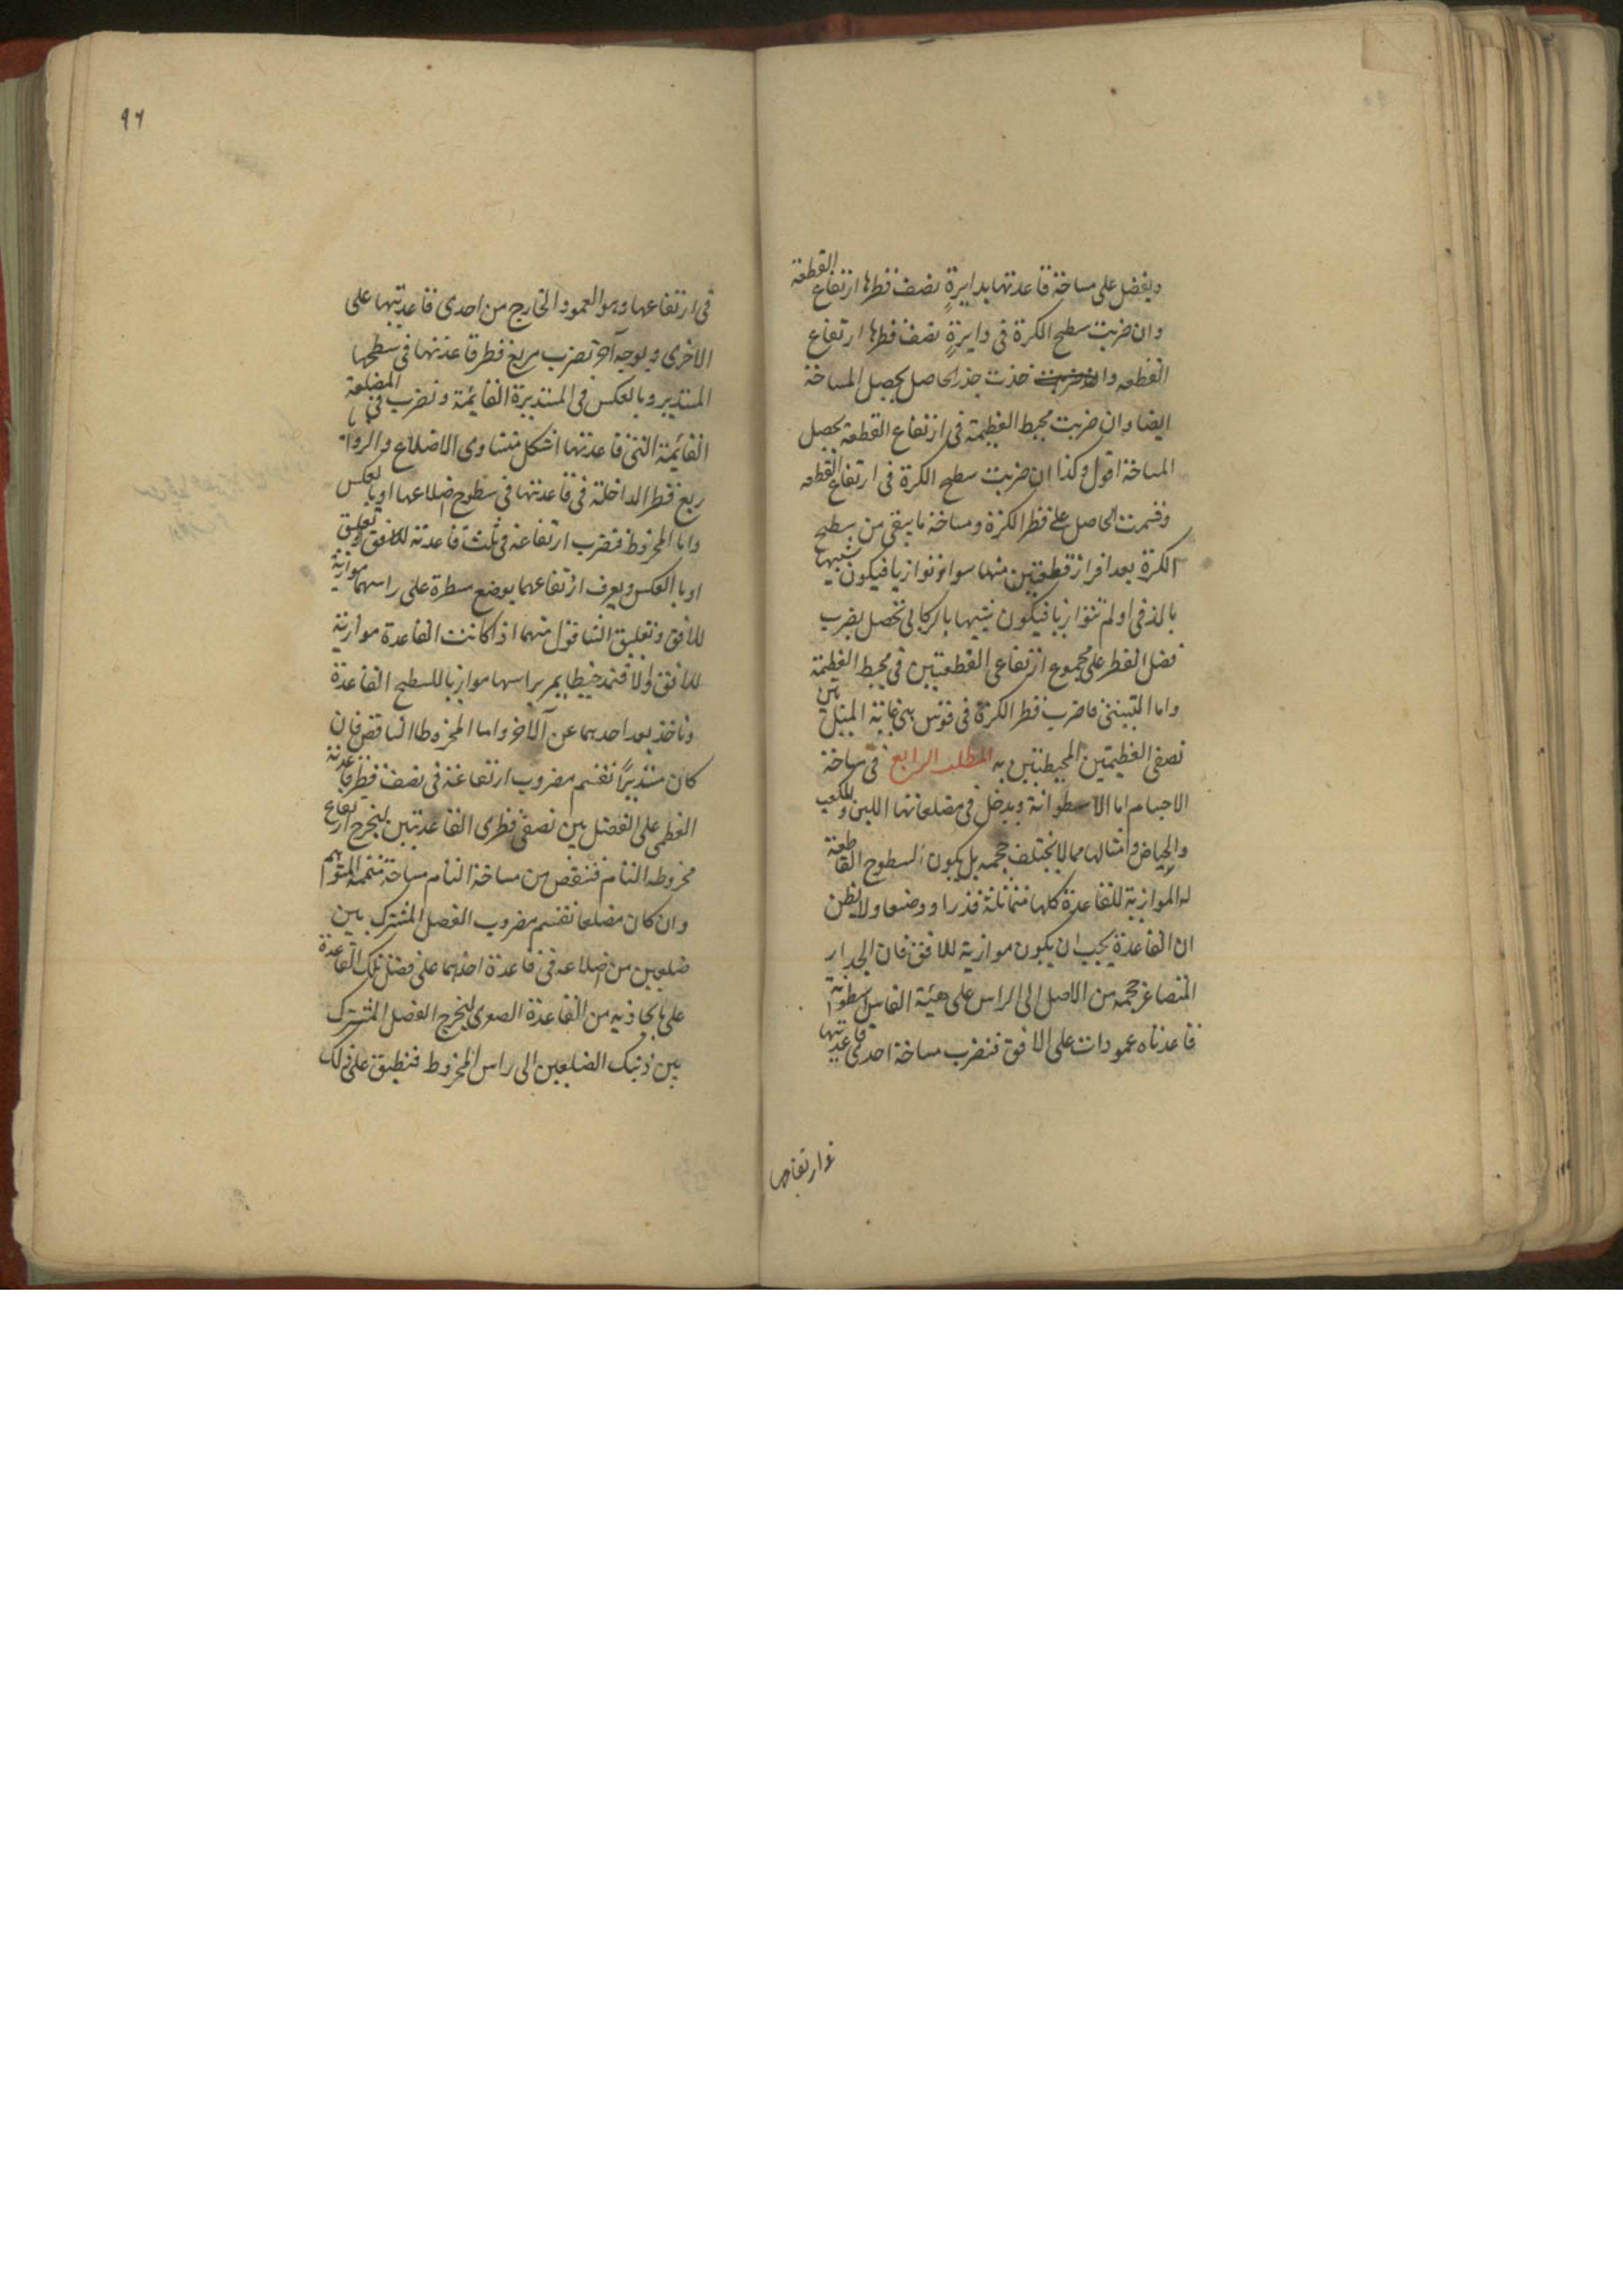 ويفضل على مساحة قاعدتها بدايرةٍ نصف قطرها ارتفاع القطعة
وان ضربت سطح الكرة فى دايرةٍ نصف قطرها ارتفاع
القطعه واخذت جذر الحاصل يحصل المساحة
ايضا وان ضربت محيط العظيمة فى ارتفاع القطعة يحصل
المساحة اقول وكذا ان ضربت سطح الكرة فى ارتفاع القطعه
وقسمت الحاصل على قطر الكرة ومساحة ما يبقى من سطح
الكرة بعد افراز قطعتين منها سواء توازيا فيكون شبيها
بالدف او لم يتوازيا فيكون شبيها بالركابى تحصل بضرب
فضل القطر على مجموع ارتفاعى القطعتين فى محيط العظيمة
واما التبينى فاضرب قطر الكرة فى قوس هى غاية الميل بين
نصفى العظيمتين المحيطتين به المطلب الرابع فى مساحة
الاجسام اما الاسطوانة ويدخل فى مضلعاتها اللبن والمكعب
والحياض وامثالها مما لا يختلف حجمه بل يكون السطوح القاطعة
له الموازية للقاعدة كلها متماثلة قدرا ووضعا ولا يظن
ان القاعدة يجب ان يكون موازية للافق فان الجدار
المتصاغر حجمه من الاصل الى الراس على هيئة الفاس اسطوانة
قاعدتاه عمودات على الافق فنضرب مساحة احدى قاعدتيها
فى ارتفاعها
٩٦
فى ارتفاعها وهو العمود الخارج من احدى قاعدتيها على
الاخرى وبوجه آخر تضرب مربع قطر قاعدتها فى سطحها
المستدير وبالعكس فى المستديرة القايمة ونضرب فى المضلعة
القائمة التى قاعدتها شكل متساوى الاضلاع والزوايا
ربع قطر الداخلة فى قاعدتها فى سطوح اضلاعها او بالعكس
واما المخروط فنضرب ارتفاعه فى ثلث قاعدته
او بالعكس ويعرف ارتفاعهما بوضع مسطرة على راسهما موازية
للافق وتعليق الشاقول منهما اذا كانت القاعدة موازية
للافق والا فنمد خيطا يمر براسها موازيا للسطح القاعدة
وناخذ بعد احدهما عن الآخر واما المخروط الناقص فان
كان مستديرًا نقسم مضروب ارتفاعه فى نصف قطر قاعدته
العظمى على الفضل بين نصفى قطرى القاعدتين ليخرج ارتفاع
مخروطه التام فننقص من مساحة التام مساحة متممه المتوهم
وان كان مضلعا نقسم مضروب الفصل المشترك بين
ضلعين من اضلاعه فى قاعدة احدهما على فضل تلك القاعدة
على ما يحاذيه من القاعدة الصغرى ليخرج الفصل المشترك
بين ذينك الضلعين الى راس المخروط فنطبق على ذلك